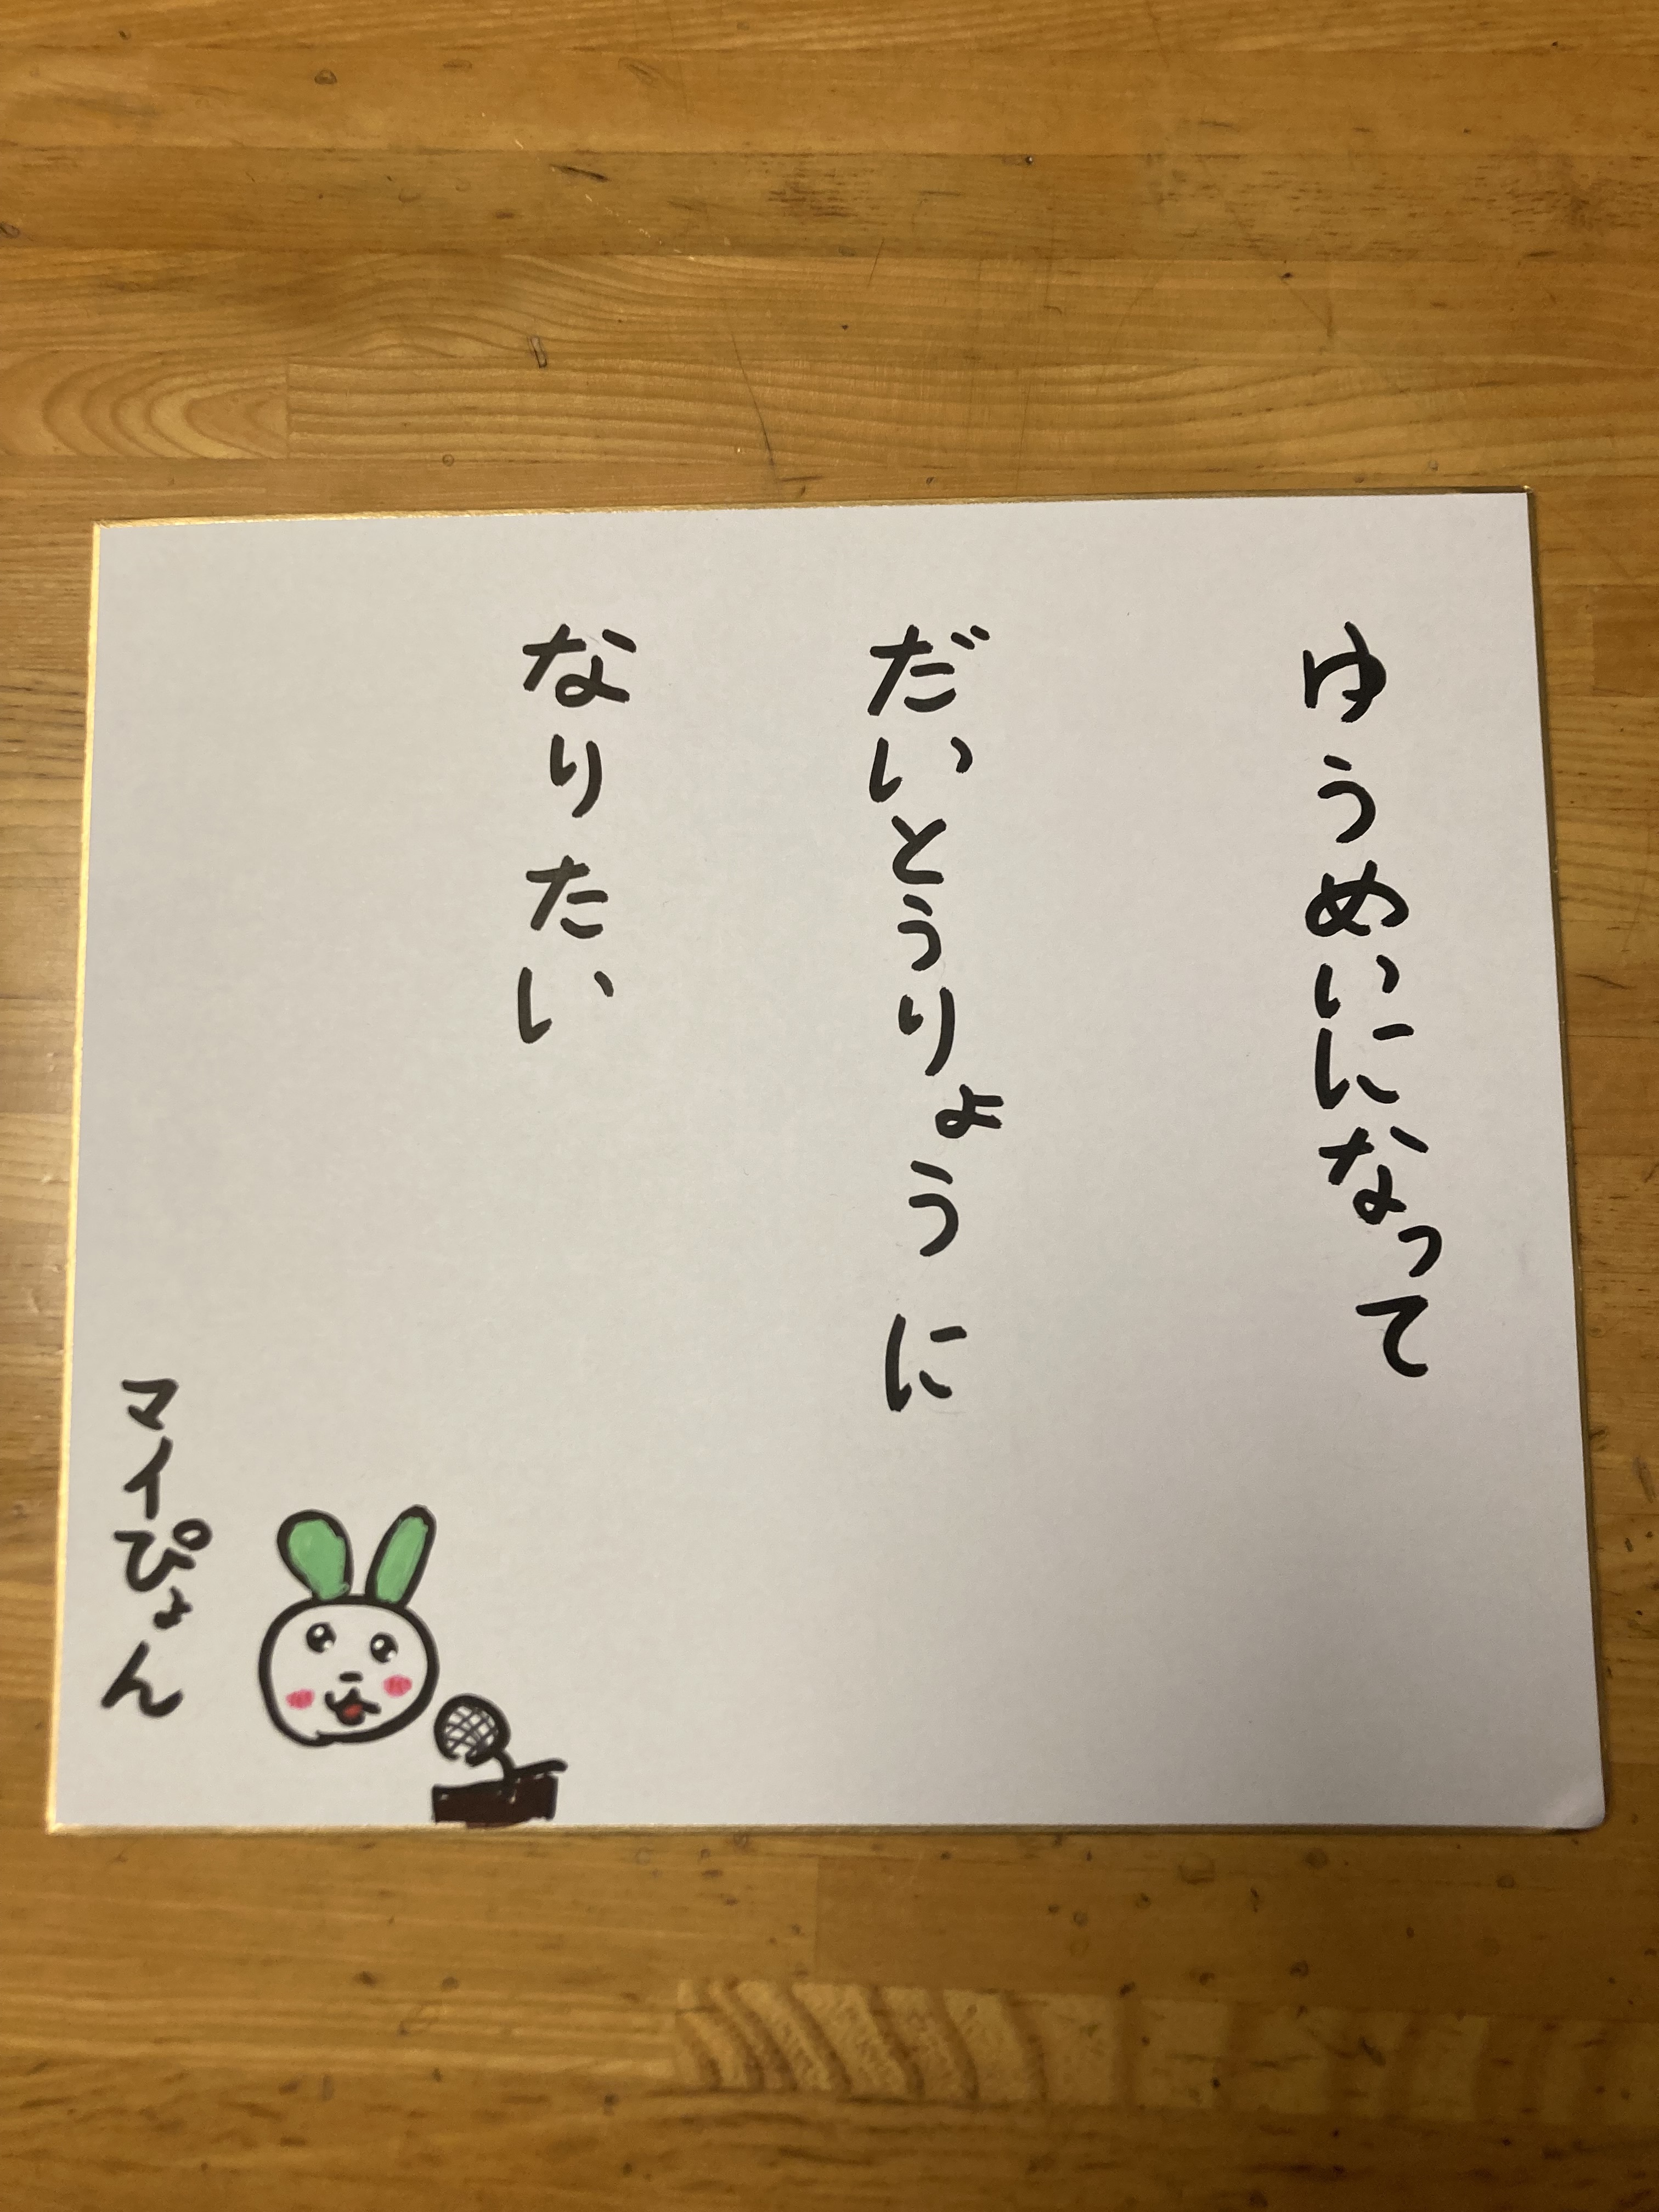 ゆうめいになって
だいとうりょうに
なりたい
マイぴょん